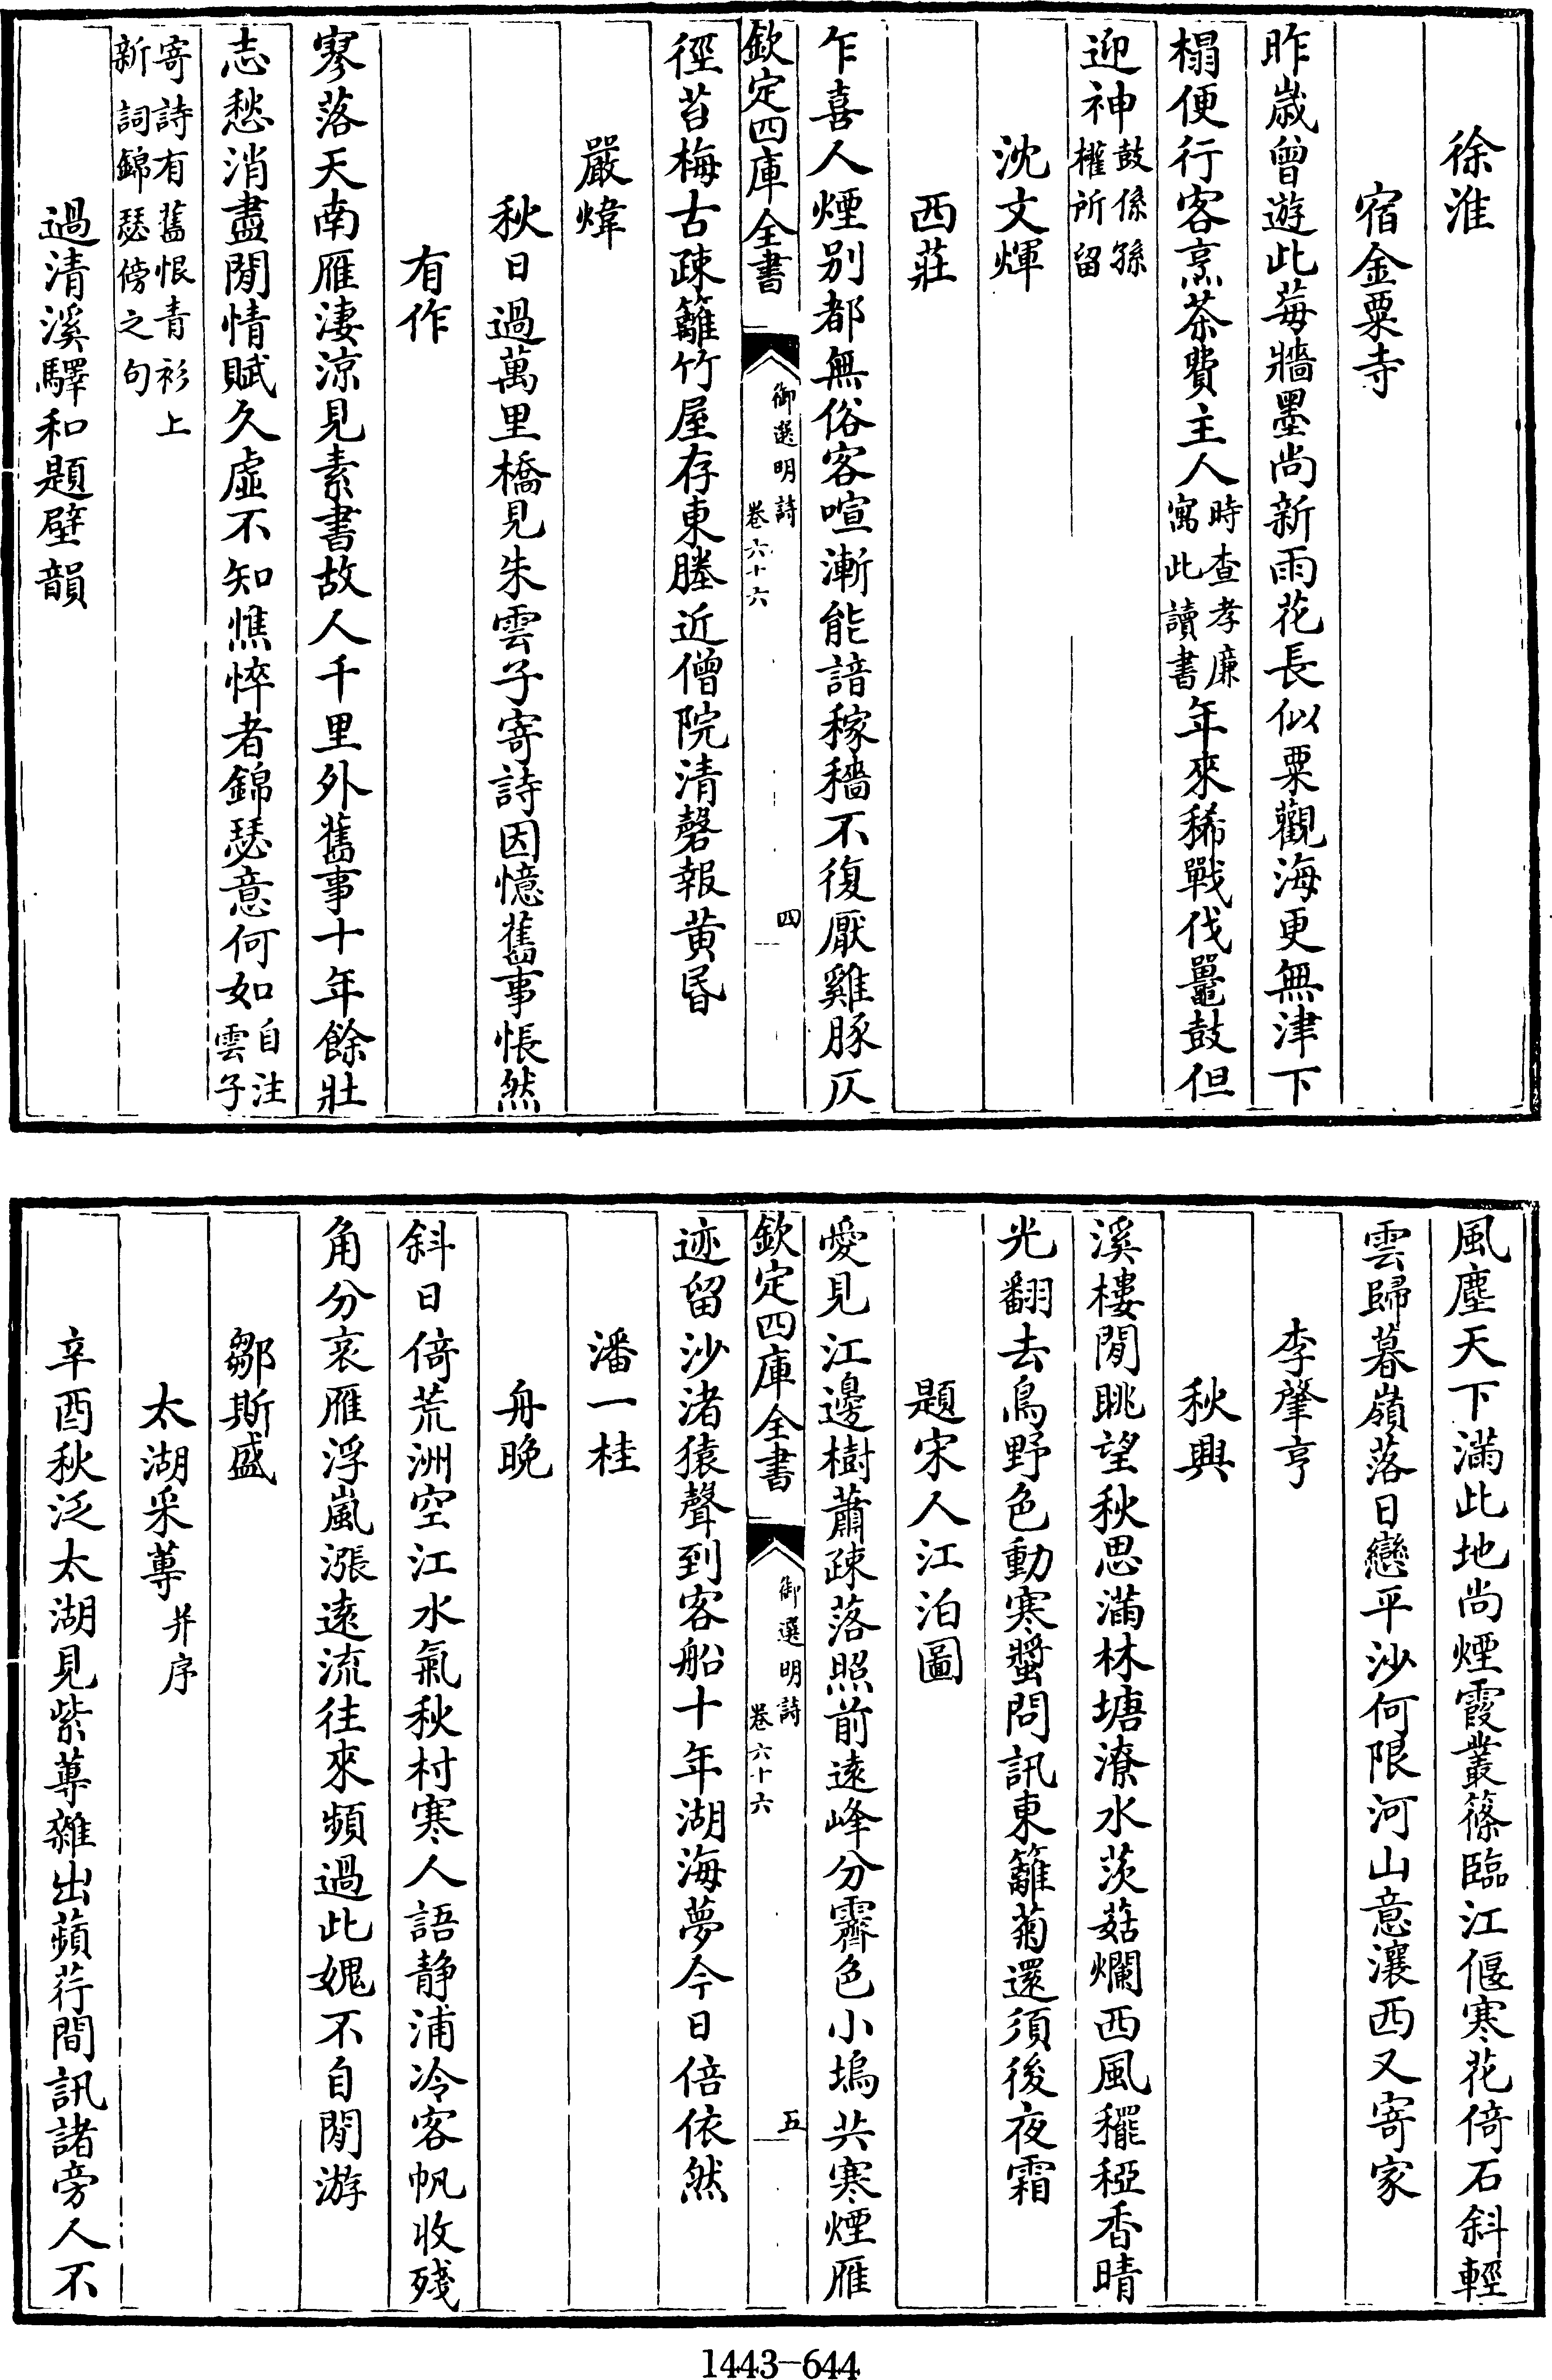 徐淮
宿金粟寺
昨歲曾遊此莓牆墨尚新雨花長似粟觀海更無津下
榻便行客烹茶費主人時查孝廉寓此讀書年來稀戰伐鼉鼓但
迎神鼓係孫權所留
沈文煇
西莊
乍喜人煙别都無俗客喧漸能諳稼穡不復厭雞豚仄
欽定四庫全書
御選明詩
卷六十六
四
徑苔梅古疎籬竹屋存東塍近僧院清磬報黄昏
嚴煒
秋日過萬里橋見朱雲子寄詩因憶舊事悵然
有作
寥落天南雁淒涼見素書故人千里外舊事十年餘壯
志愁消盡閒情賦久虛不知憔悴者錦瑟意何如自注雲子
寄詩有舊恨青衫上
新詞錦瑟傍之句
過清溪驛和題壁韻
風塵天下滿此地尚煙霞叢篠臨江偃寒花倚石斜輕
雲歸暮嶺落日戀平沙何限河山意瀼西又寄家
李肇亨
秋興
溪樓閒眺望秋思滿林塘潦水茨菇爛西風䆉稏香晴
光翻去鳥野色動寒螿問訊東籬菊還須後夜霜
題宋人江泊圖
愛見江邊樹蕭疎落照前遠峰分霽色小塢共寒煙雁
欽定四庫全書
御選明詩
卷六十六
五
迹留沙渚猿聲到客船十年湖海夢今日倍依然
潘一桂
舟晚
斜日倚荒洲空江水氣秋村寒人語静浦冷客帆收殘
角分哀雁浮嵐漲遠流往來頻過此媿不自閒游
鄒斯盛
太湖采蓴并序
辛酉秋泛太湖見紫蓴雜出蘋荇間訊諸旁人不
1443-644